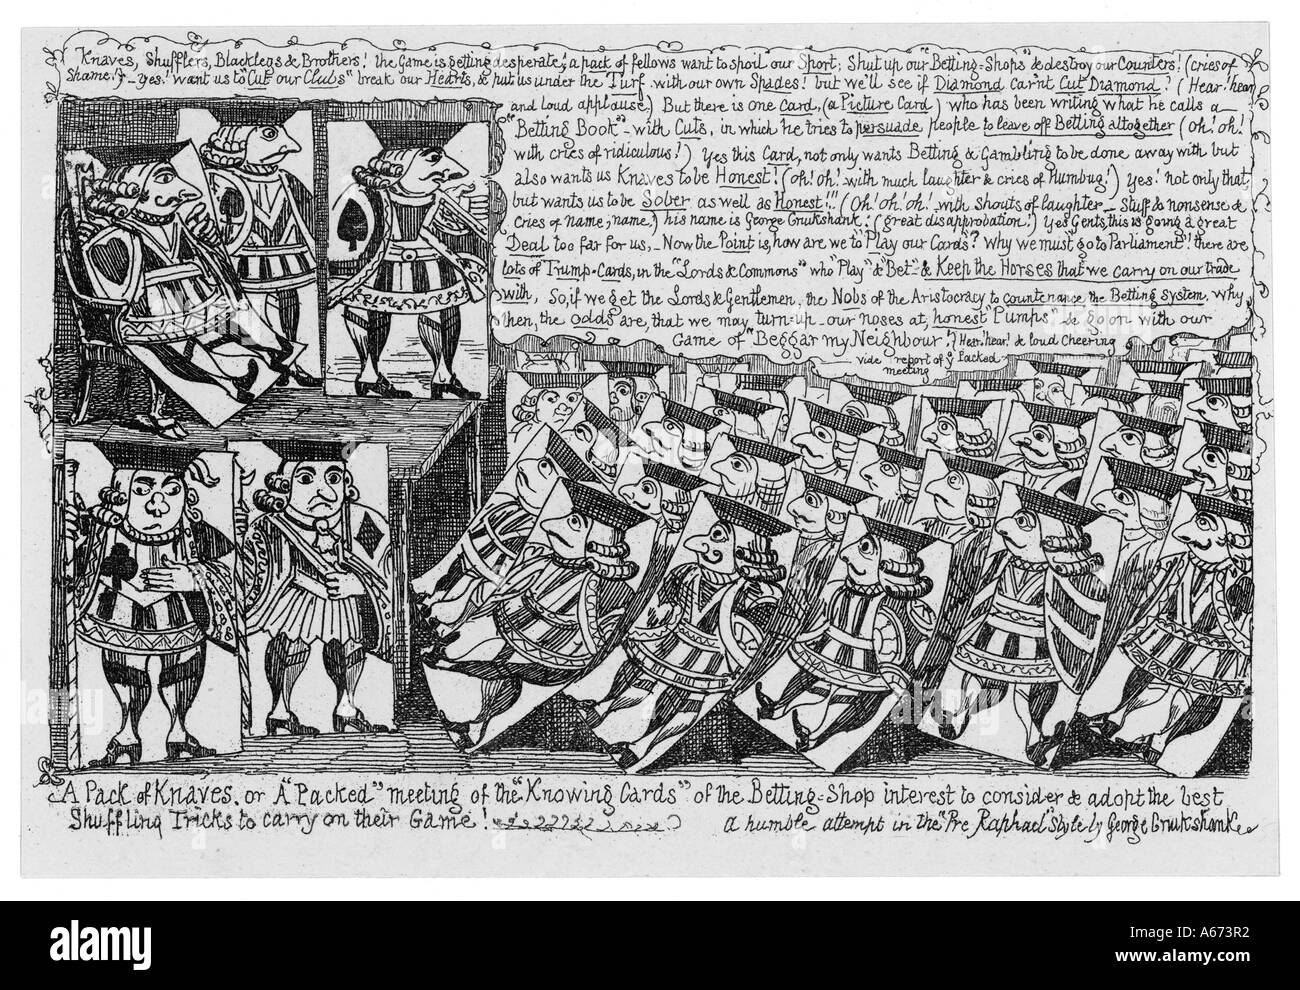 Knaves, Shufflers, Blacklegs & Brothers! the Game is getting desperate; a pack of fellows want to spoil our Sport; Shut up our "Betting-Shops" & destroy our Counters! (cries of
Shame!) - yes! want us to "Cut our Clubs" break our Hearts, & put us under the Turf with our own Spades! but we'll see if Diamond can't Cut Diamond! (Hear! hear
and loud applause.) But there is one Card, (a Picture Card) who has been writing what he calls a
"Betting Book" - with Cuts, in which he tries to persuade people to leave off Betting altogether (oh! oh!
with cries of ridiculous!) Yes this Card, not only wants Betting & Gambling to be done away with but
also wants us Knaves to be Honest! (oh! oh! with much laughter & cries of Humbug!) Yes! not only that
but wants us to be Sober as well as Honest!" (Oh! oh! oh! with shouts of laughter - Stuff & nonsense &
Cries of name, name,) his name is George Cruikshank! (great disapprobation!) Yes Gents, this is going a great
Deal too far for us, - Now the Point is, how are we to "Play our Cards"? Why we must go to Parliament! there are
lots of Trump-Cards, in the "Lords & Commons" who "Play" & "Bet" - & Keep the Horses that we carry on our trade
with, So, if we get the Lords & Gentlemen, the Nobs of the Aristocracy to countenance the Betting system, why
then, the odds are, that we may turn-up our noses at, honest "Pumps" & go on with our
Game of "Beggar my Neighbour"! (Hear, hear! & loud Cheering
vide report of ye Packed
meeting
A Pack of Knaves. or A "Packed" meeting of the "Knowing Cards" of the Betting-Shop interest to consider & adopt the best
Shuffling Tricks to carry on their Game!
a humble attempt in the "Pre Raphael" Style by George Cruikshank
alamy
Image ID: A673R2
www.alamy.com